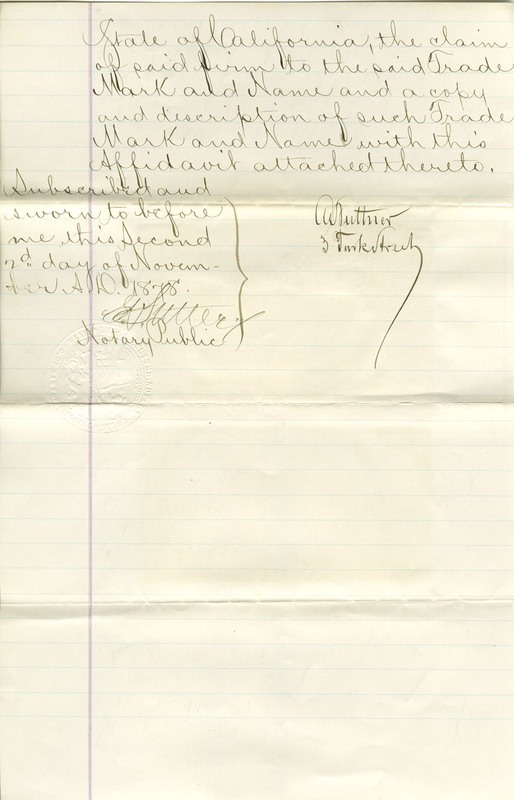 State of California, the claim
of said firm to the said Trade
Mark and Name and a copy
and description of such Trade
Mark and Name with this
Affidavit attached thereto.
Subscribed and
sworn to before
me this Second
2d day of Novem-
ber A.D. 1878.
Notary Public
A Huttner
3 Turk Street